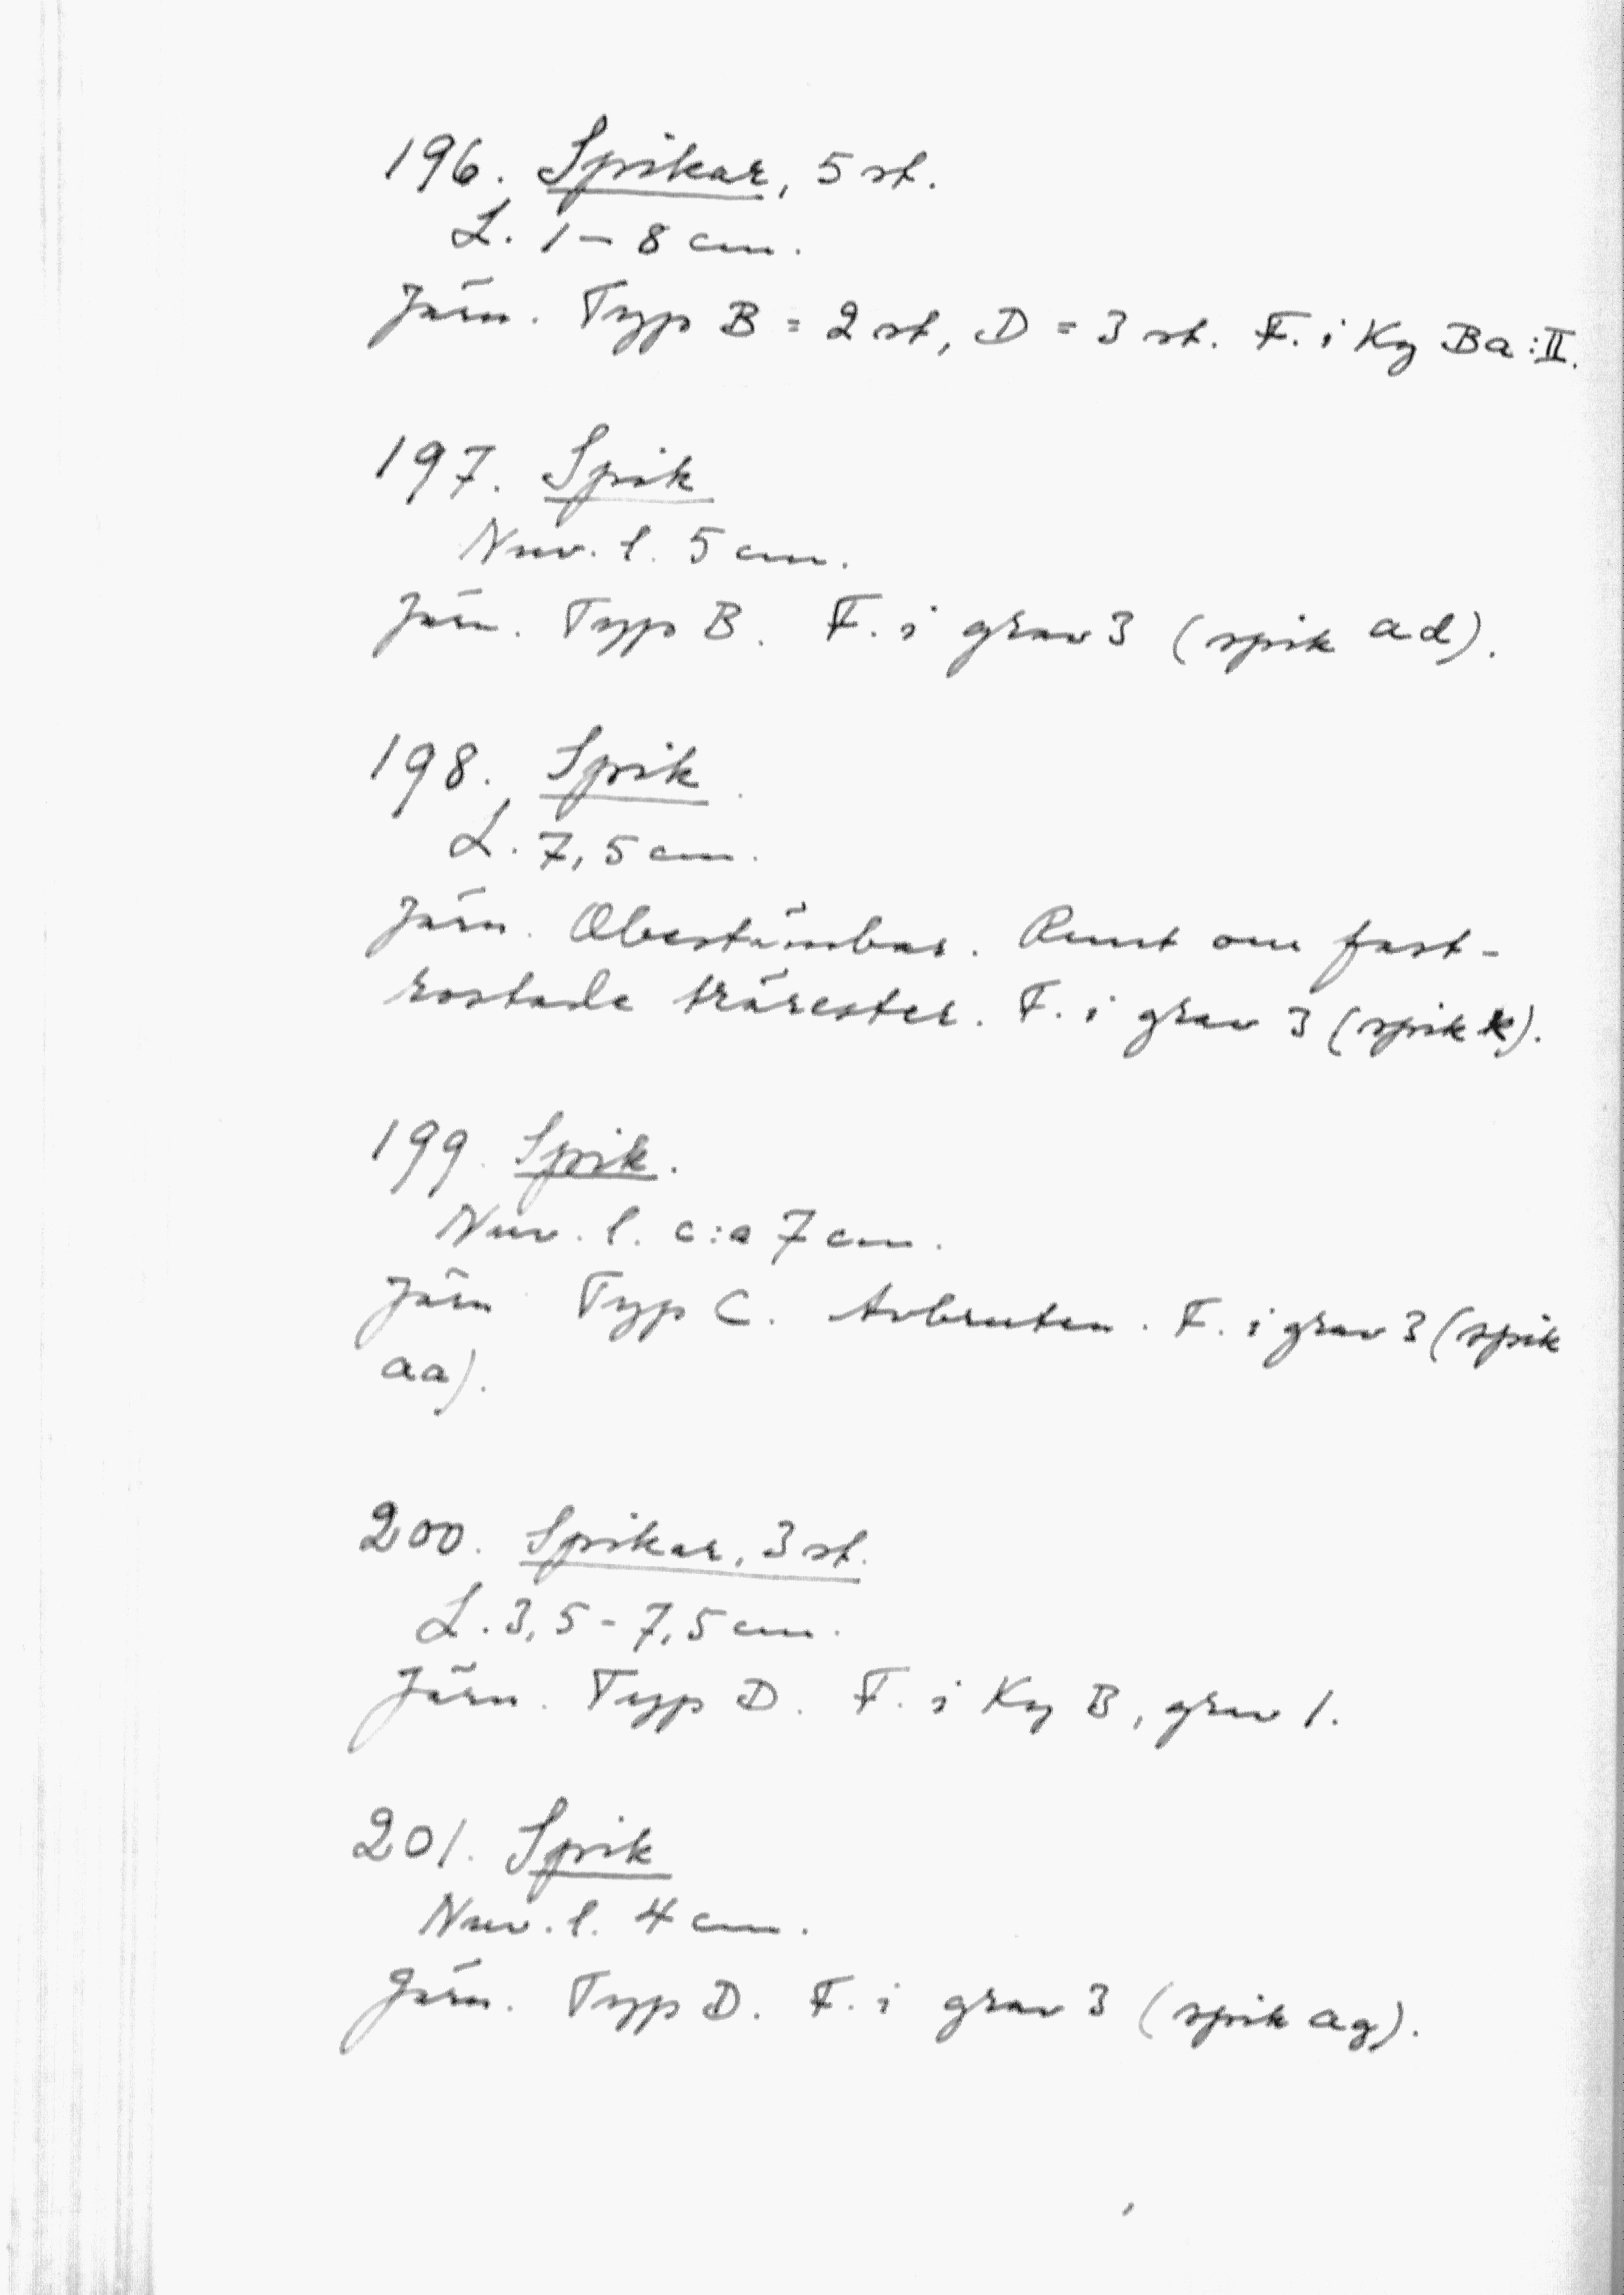 196. Spikar, 5 st.
L. 1 – 8 cm.
Järn. Typ B = 2 st, D = 3 st. F. i Kg Ba:II.
197. Spik
Nuv. l. 5 cm.
Järn. Typ B. F. i grav 3 (spik ad).
198. Spik
L. 7,5 cm.
Järn. Obestämbar. Runt om fast-
rostade trärester. F. i grav 3 (spik k).
199. Spik.
Nuv. l. c:a 7 cm.
Järn Typ C. Avbruten. F. i grav 3 (spik
aa).
200. Spikar, 3 st.
L. 3,5 - 7,5 cm.
Järn. Typ D. F. i Kg B, grav 1.
201. Spik
Nuv. l. 4 cm.
Järn. Typ D. F. i grav 3 (spik ag).